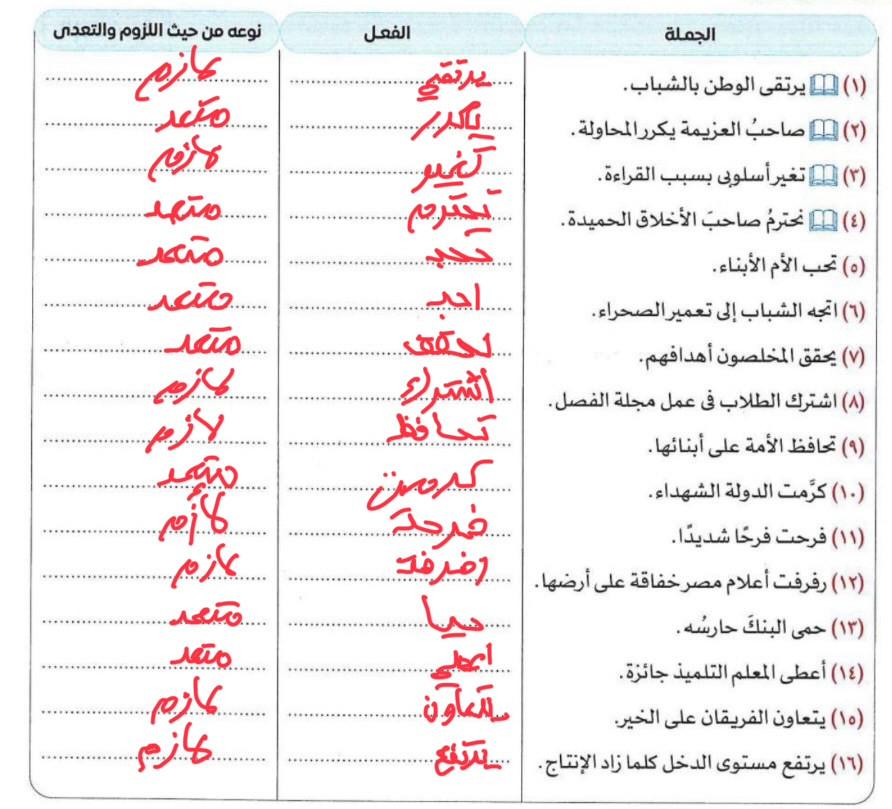 الجملة الفعل نوعه من حيث اللزوم والتعدى
(١) يرتقى الوطن بالشباب. يرتقي لازم
(٢) صاحبُ العزيمة يكرر المحاولة. يكرر متعد
(٣) تغير أسلوبى بسبب القراءة. تغير لازم
(٤) نحترمُ صاحبَ الأخلاق الحميدة. نحترم متعد
(٥) تحب الأم الأبناء. تحب متعد
(٦) اتجه الشباب إلى تعمير الصحراء. متعد
(٧) يحقق المخلصون أهدافهم. متعد
(٨) اشترك الطلاب فى عمل مجلة الفصل. اشترك لازم
(٩) تحافظ الأمة على أبنائها. تحافظ لازم
(١٠) كرَّمت الدولة الشهداء. كرمت متعد
(١١) فرحت فرحًا شديدًا. فرحة لازم
(١٢) رفرفت أعلام مصر خفاقة على أرضها. لازم
(١٣) حمى البنكَ حارسُه. متعد
(١٤) أعطى المعلم التلميذ جائزة. متعد
(١٥) يتعاون الفريقان على الخير. يتعاون لازم
(١٦) يرتفع مستوى الدخل كلما زاد الإنتاج. يرتفع لازم